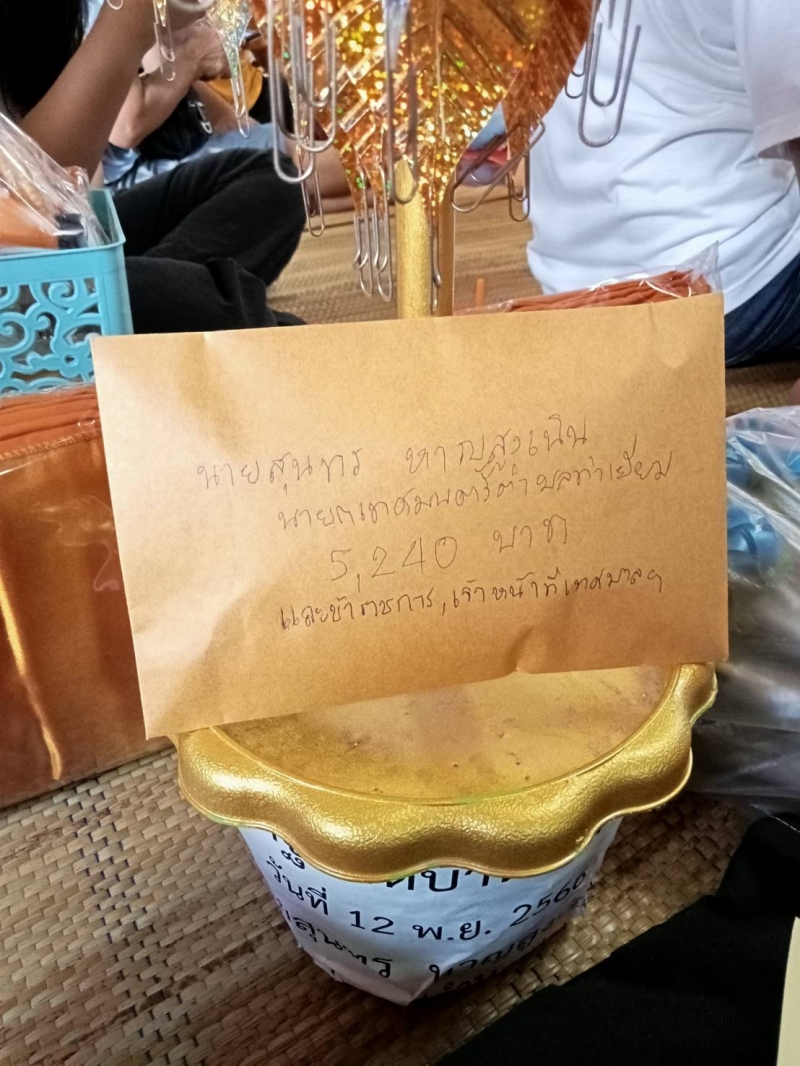 นายสุนทร หาญสูงเนิน
นายกเทศมนตรีตำบลท่าเยี่ยม
5,240 บาท
และข้าราชการ, เจ้าหน้าที่เทศบาลฯ
วันที่ 12 พ.ย. 256
สุนทร หาญสูง